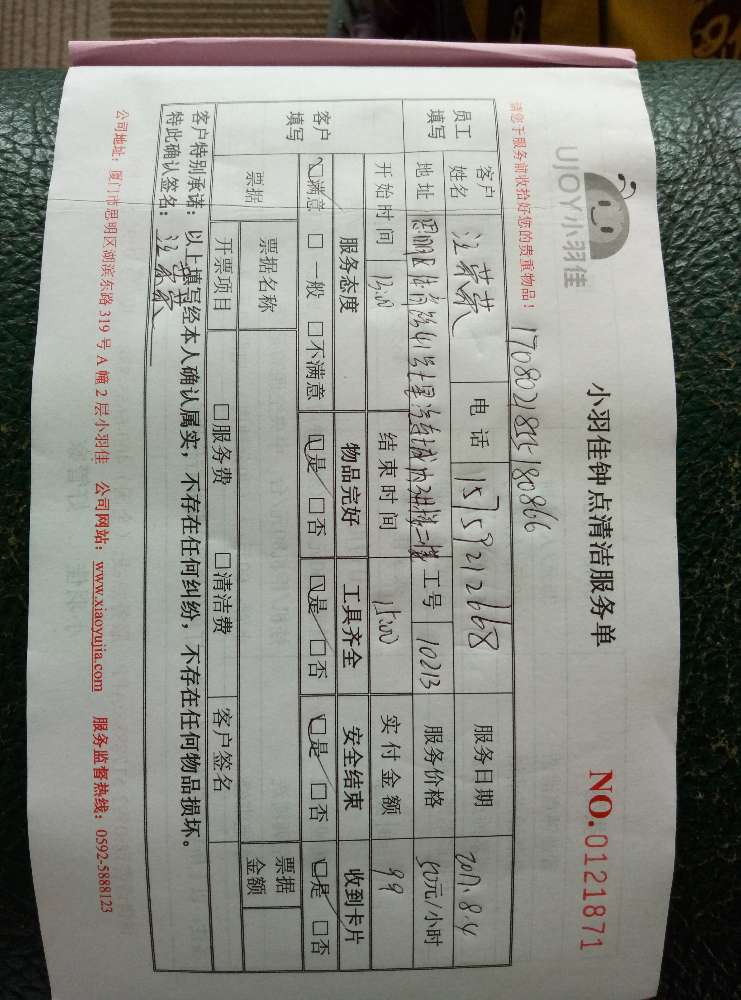 UJOY小羽佳
小羽佳钟点清洁服务单
NO.0121871
请您于服务前收拾好您的贵重物品!
1708021855180866
员工填写 客户姓名 江荣荣 电话 15759212668 服务日期 2017.8.4
地址 思明区 工号 10213 服务价格 50元/小时
开始时间 13:00 结束时间 15:00 实付金额 99
客户填写 服务态度 物品完好 工具齐全 安全结束 收到卡片
☑满意 □一般 □不满意 ☑是 □否 ☑是 □否 ☑是 □否 ☑是 □否
票据 票据名称 票据金额
开票项目 □服务费 □清洁费 客户签名
客户特别承诺:以上填写经本人确认属实,不存在任何纠纷,不存在任何物品损坏。
特此确认签名: 江荣荣
公司地址:厦门市思明区湖滨东路 319 号 A 幢 2 层小羽佳 公司网站:www.xiaoyujia.com 服务监督热线:0592-5888123